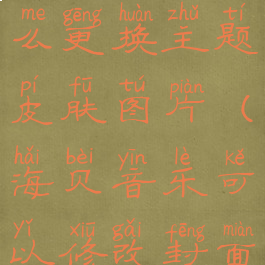 me gēng huàn zhǔ tí
么更换主题
pí fū tú piàn
皮肤图片（
hǎi bèi yīn lè kě
海贝音乐可
yǐ xiū gǎi fēng miàn
以修改封面